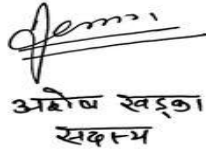 अशेष खड्का
सदस्य